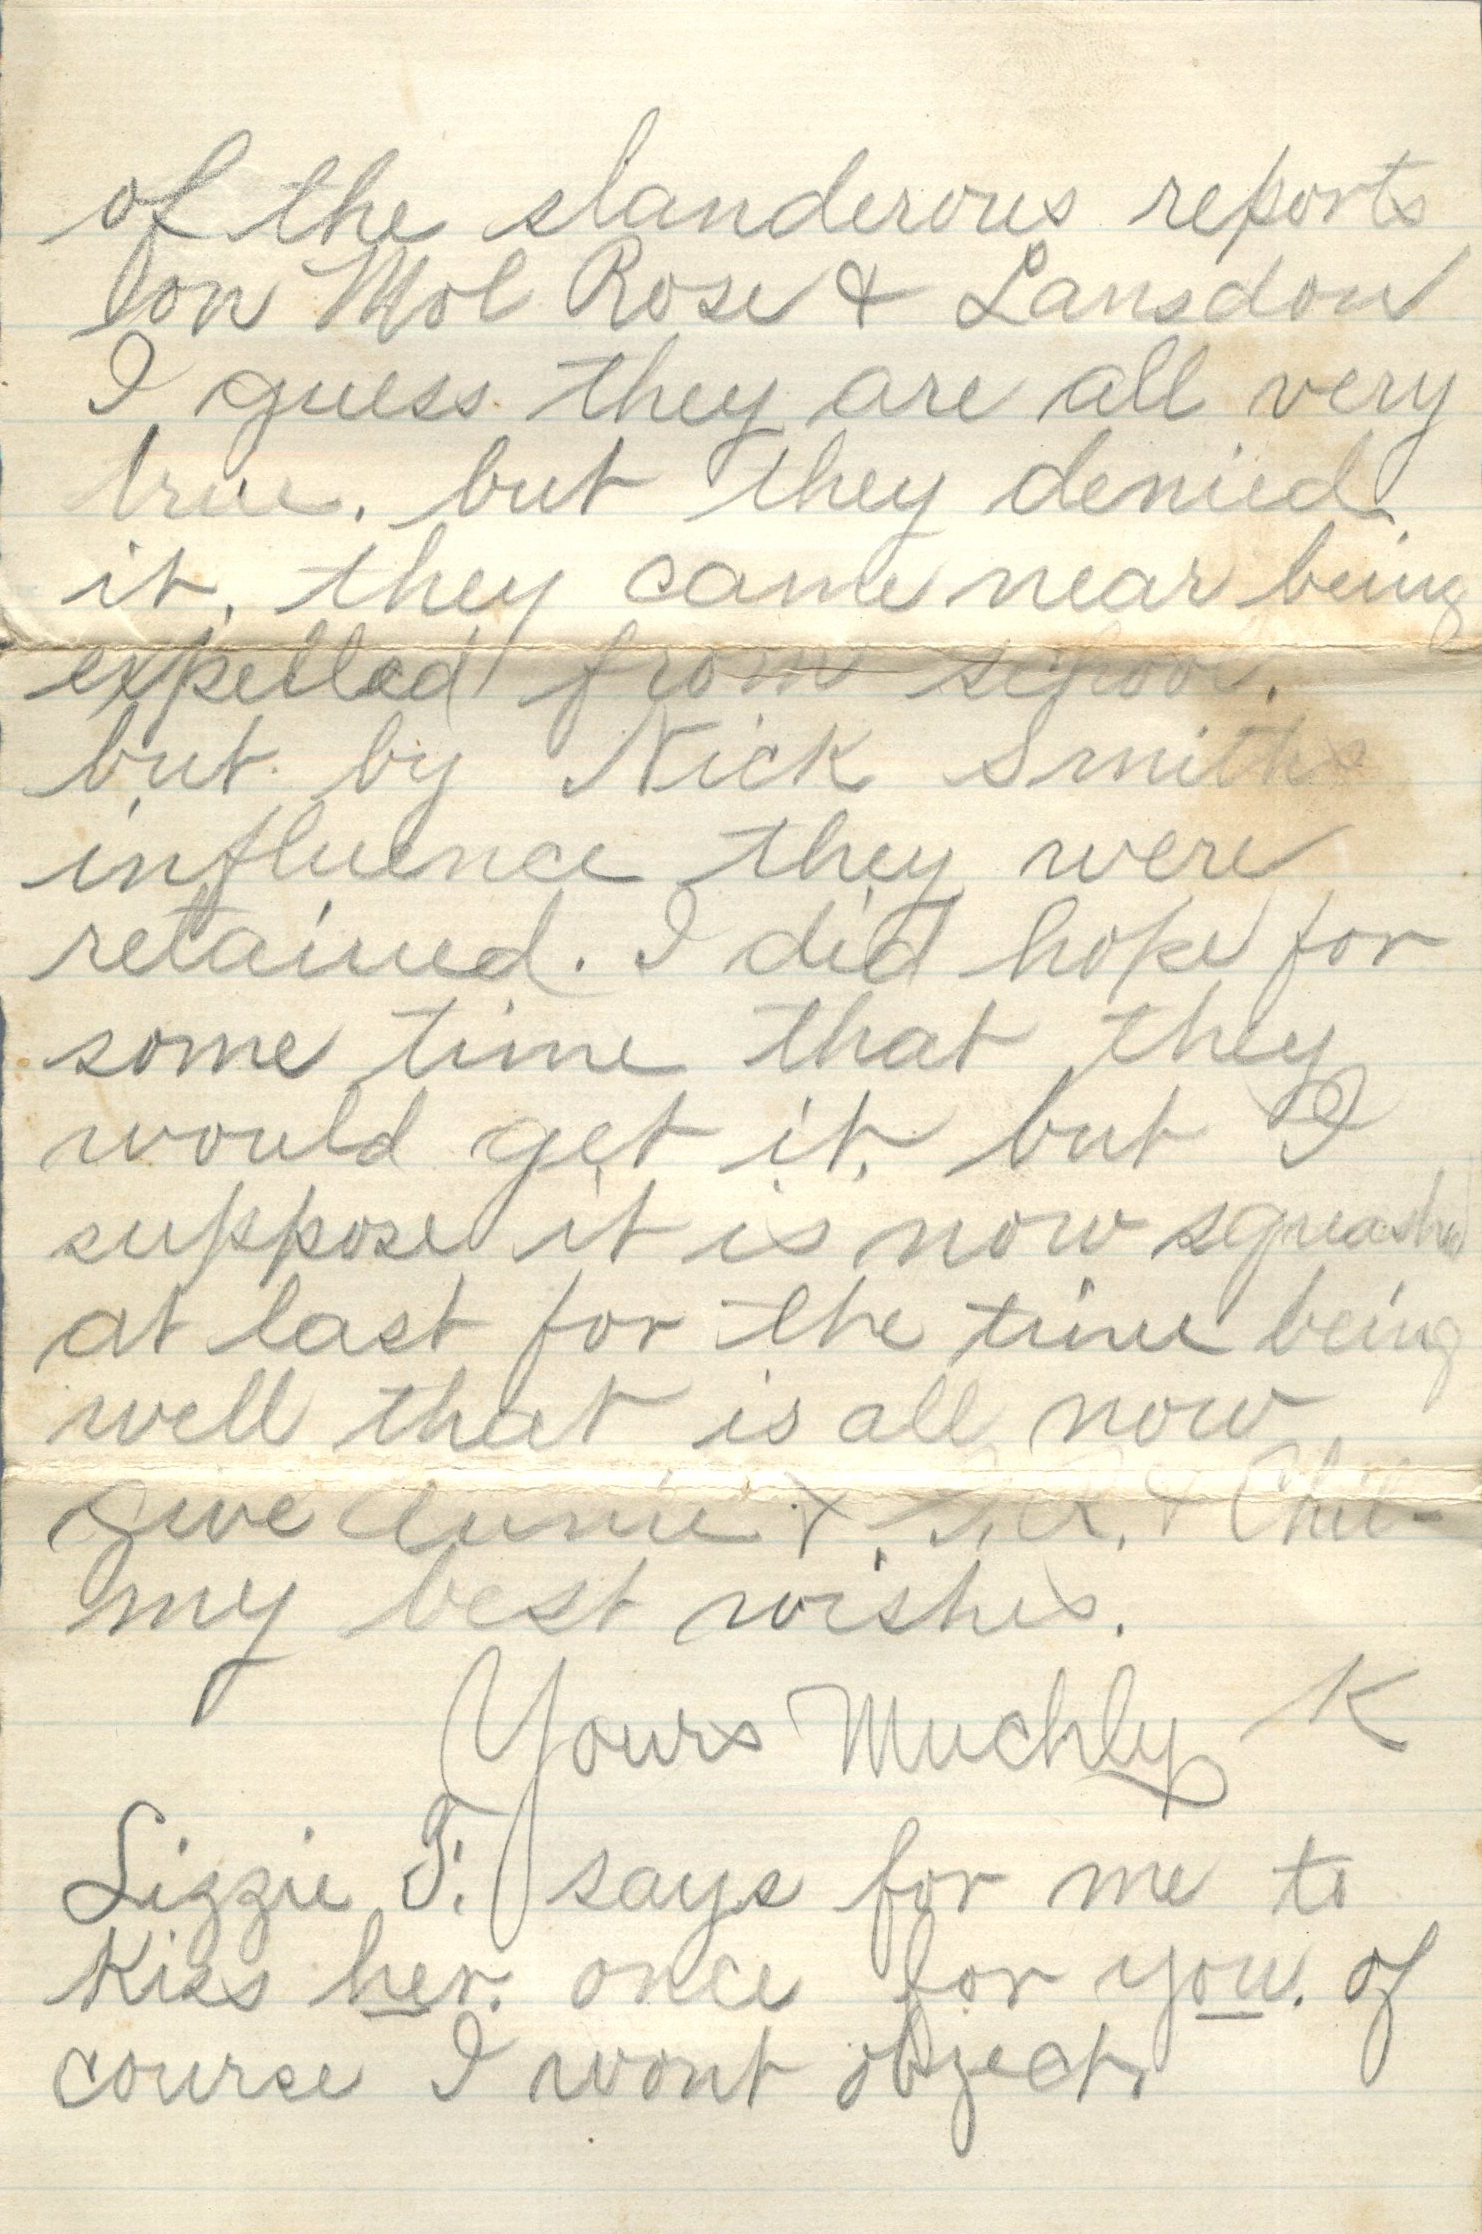 of the slanderous reports
on Mol Rose & Lansdon
I guess they are all very
true. but they denied
it, they came near being
expelled from school.
but by Nick Smiths
influence they were
retained. I did hope for
some time that they
would get it, but I
suppose it is now squashed
at last for the time being
well that is all now
give Annie & & Chil-
my best wishes.
Yours Muchly K
Lizzie F. says for me to
Kiss her. once for you. of
course I wont object.